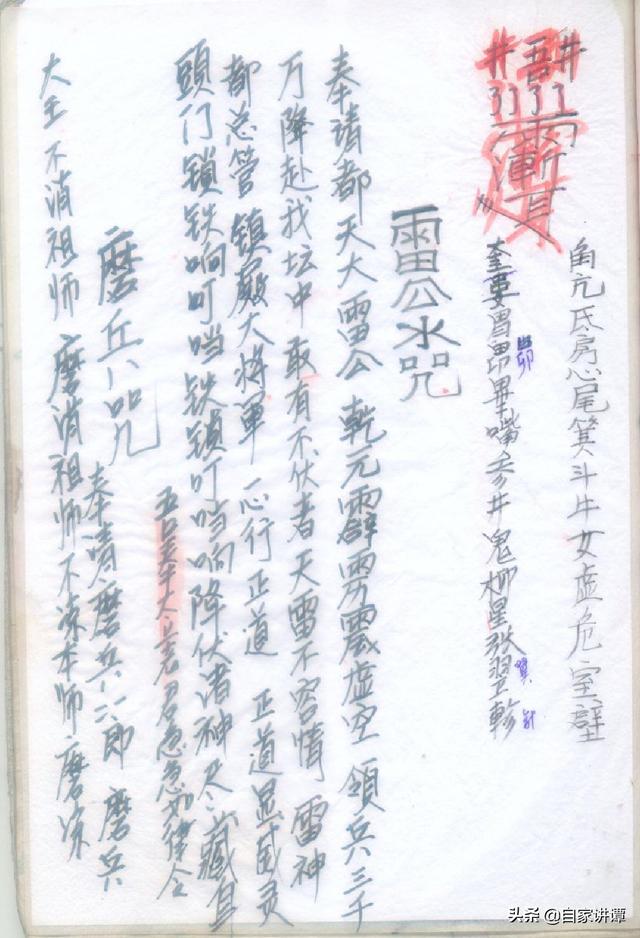 角亢氐房心尾箕斗牛女虚危室壁
奎婁胃昴畢嘴参井鬼柳星张翌軫
雷公水咒
奉请都天大雷公 乾元霹雳震虚空 领兵三千
万降赴我坛中 敢有不伏者 天雷不容情 雷神
都总管 镇殿大将軍 一心行正道 正道显威灵
頭门锁铁响叮噹 铁锁叮噹响 降伏诸神尽藏身
急急如律令
磨兵咒 奉请磨兵六郎 磨兵
大王 不消祖师 磨消祖师 不凉本师 磨凉
头条 @自家讲谭